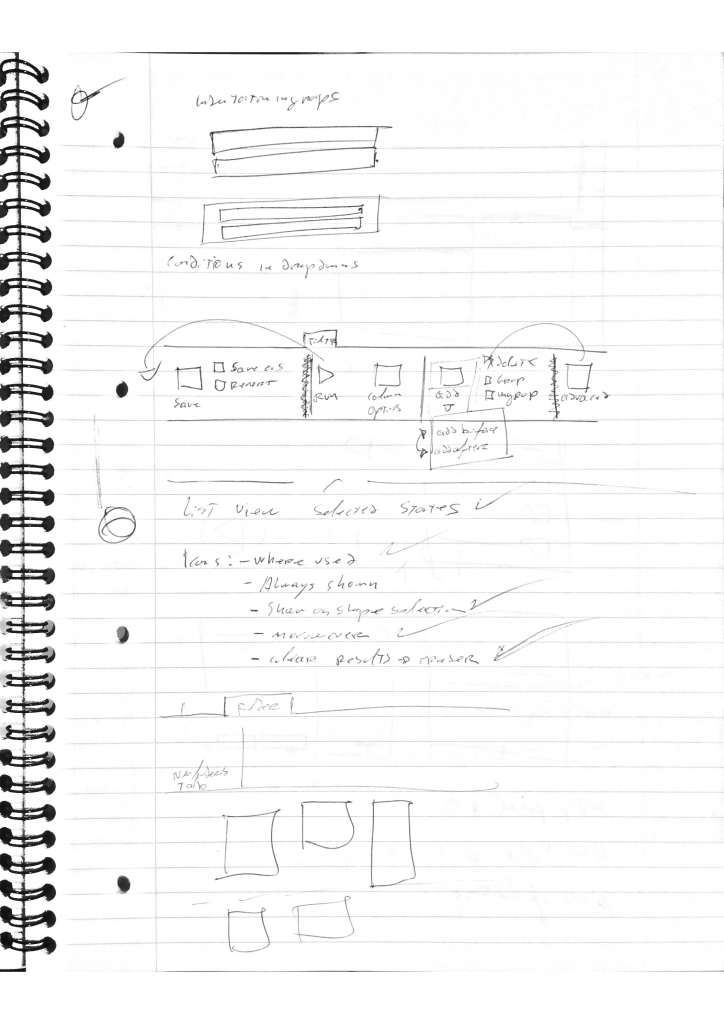 Indentation in groups
Conditions in dropdowns
Filter
Save as
Revert
Save
Run
Column
Options
add
Delete
Group
ungroup
advanced
add before
add after
List view selected states
Icons: - Where used
- Always shown
- Show on shape selection
- mouseover
- clear results → eraser
Folder